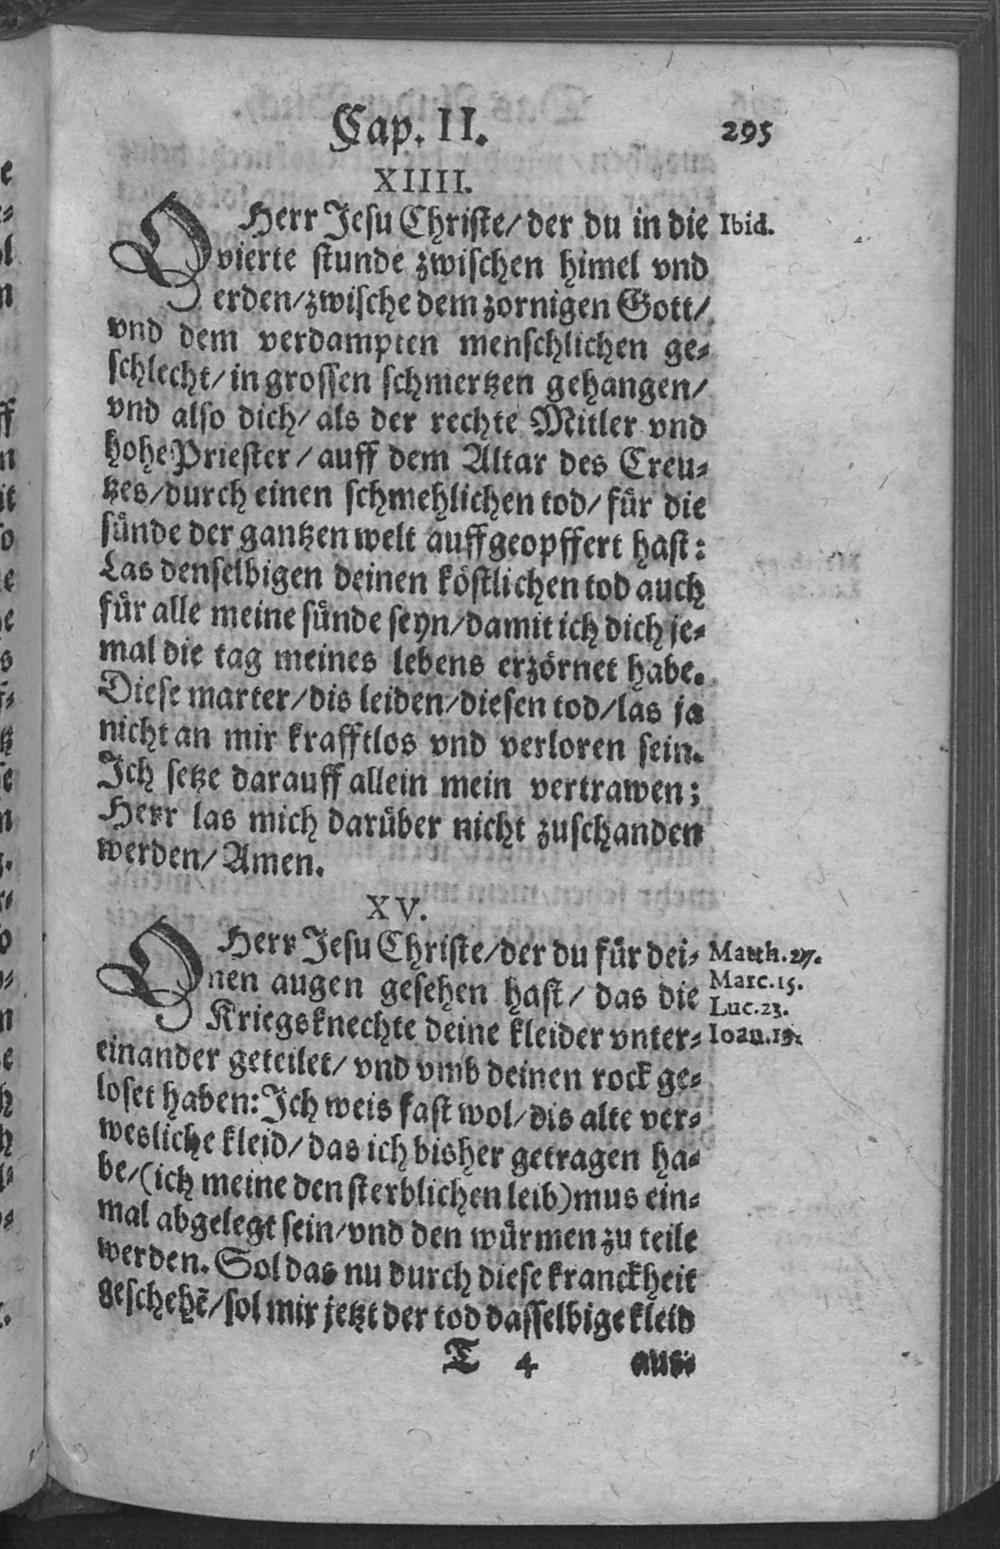 Cap. II. 295
XIIII.
O Herr Jesu Christe/ der du in die Ibid.
vierte stunde zwischen himel vnd
erden/ zwische dem zornigen Gott/
vnd dem verdampten menschlichen ge⸗
schlecht/ in grossen schmertzen gehangen/
vnd also dich/ als der rechte Mitler vnd
hohe Priester/ auff dem Altar des Creu⸗
tzes/ durch einen schmehlichen tod/ für die
sünde der gantzen welt auffgeopffert hast:
Las denselbigen deinen köstlichen tod auch
für alle meine sünde seyn/ damit ich dich je⸗
mal die tag meines lebens erzörnet habe.
Diese marter/ dis leiden/ diesen tod/ las ja
nicht an mir krafftlos vnd verloren sein.
Ich setze darauff allein mein vertrawen;
Herr las mich darüber nicht zuschanden
werden/ Amen.
XV.
O Herr Jesu Christe/ der du für dei⸗ Matth. 27.
nen augen gesehen hast/ das die Marc. 15.
Luc. 23.
Kriegsknechte deine kleider vnter⸗ Ioan. 19.
einander geteilet/ vnd vmb deinen rock ge⸗
loset haben: Ich weis fast wol/ dis alte ver⸗
wesliche kleid/ das ich bisher getragen ha⸗
be/ (ich meine den sterblichen leib) mus ein⸗
mal abgelegt sein/ vnd den würmen zu teile
werden. Sol das nu durch diese kranckheit
geschehē/ sol mir jetzt der tod dasselbige kleid
T 4 aus⸗